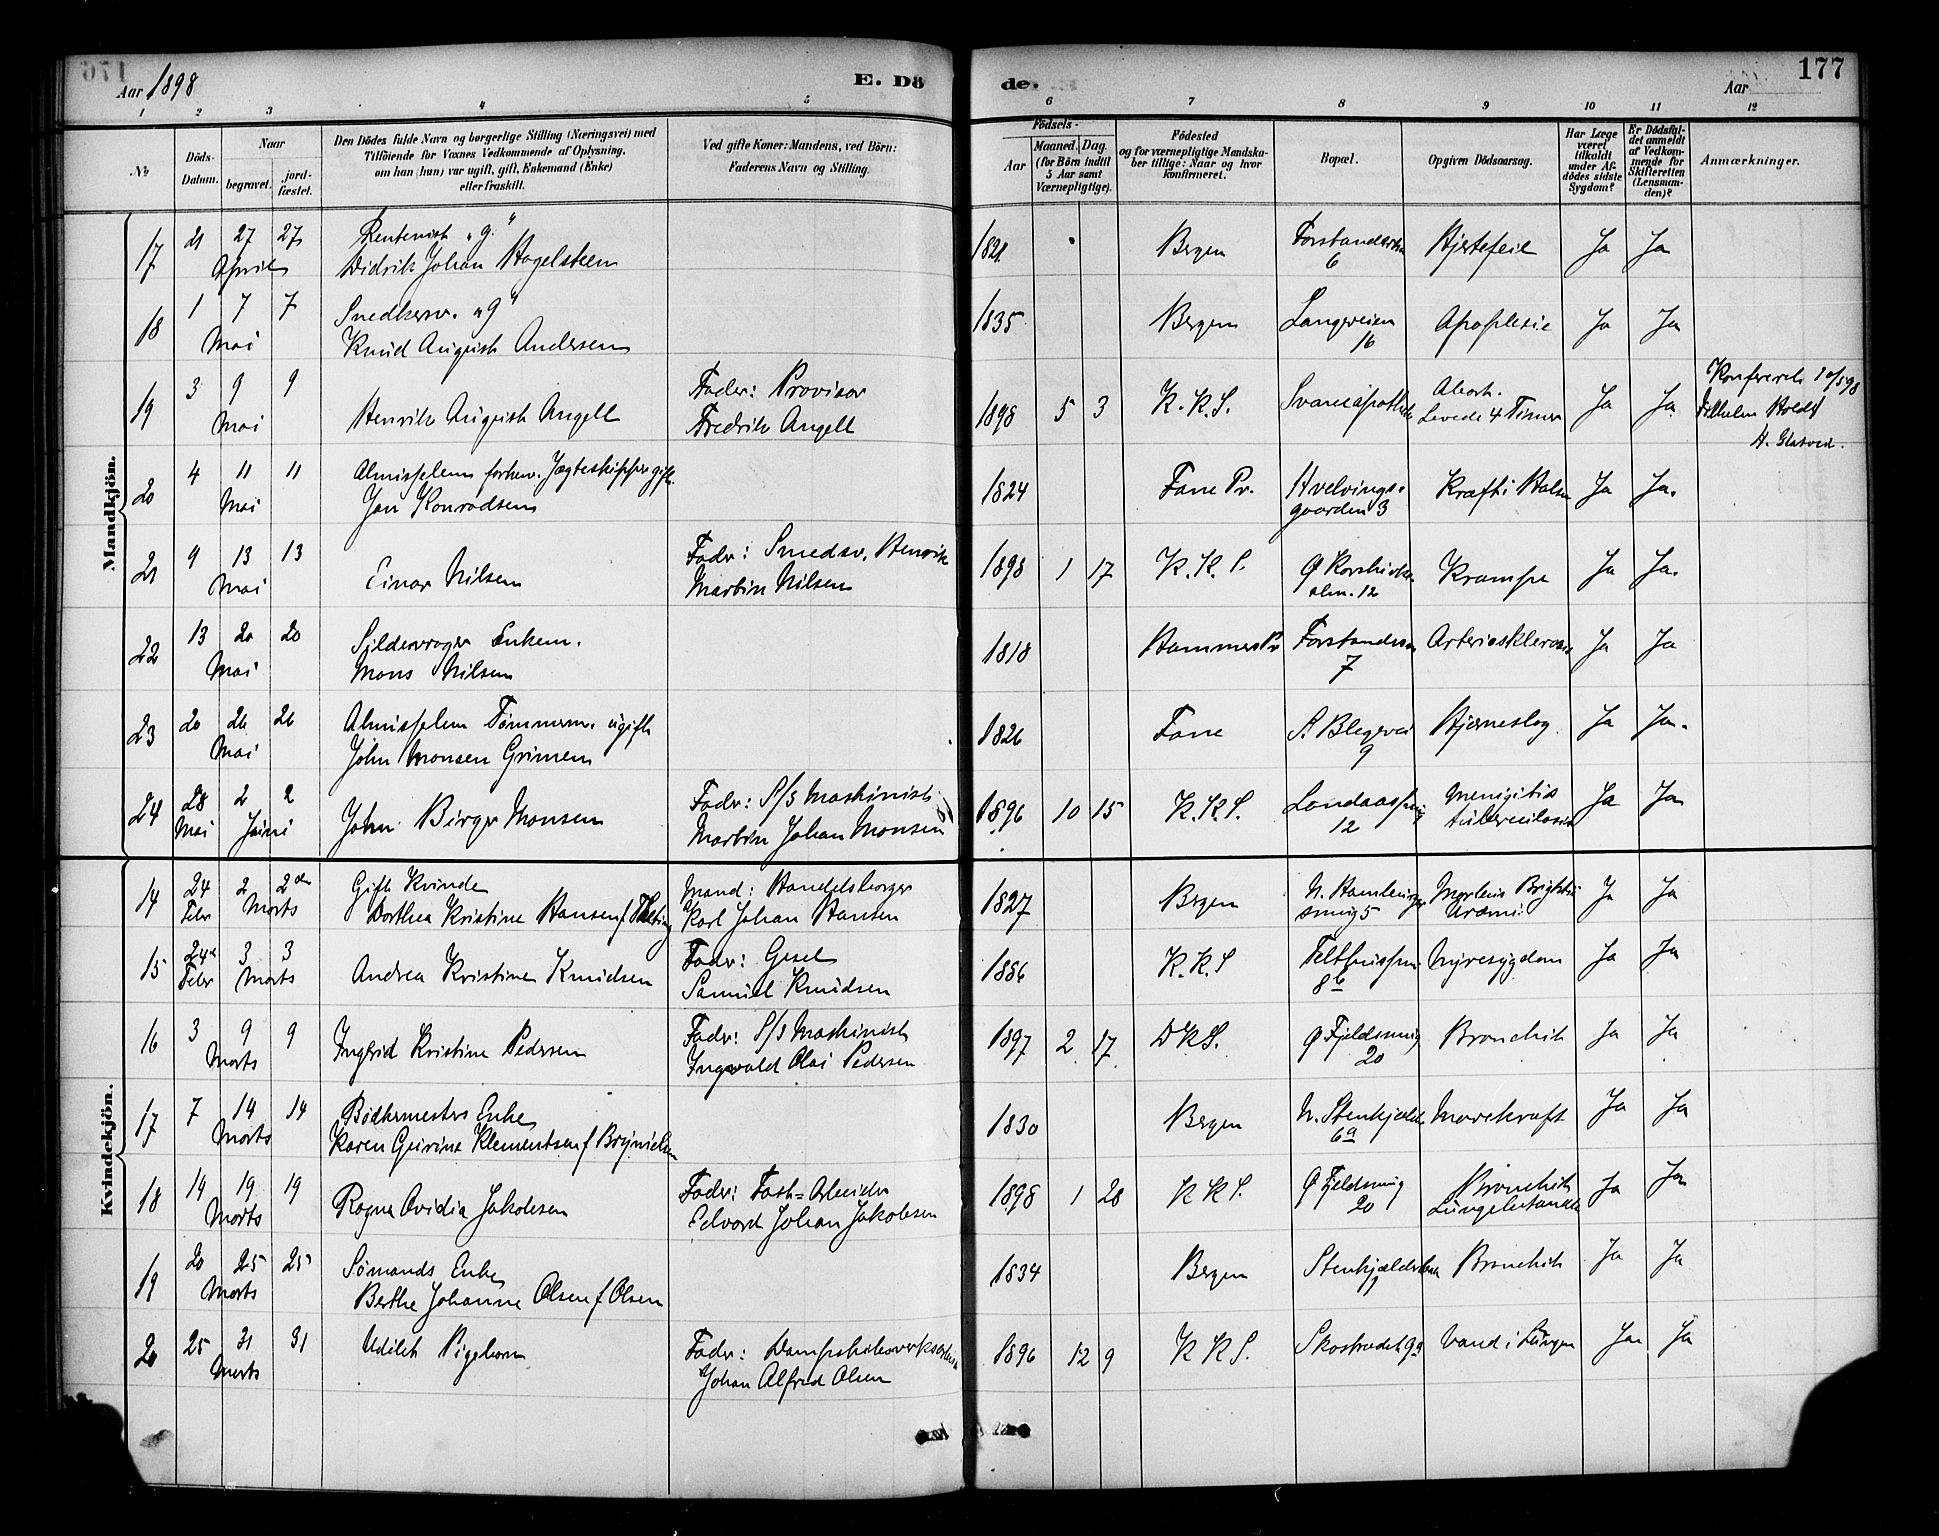 Aar 1898
E. Dö
de.
Aar
177
1 2 3 4 5 6 7 8 9 10 11 12
№
Döds-Datum.
Naar
begravet.
jord-fæstet.
Den Dödes fulde Navn og borgerlige Stilling (Næringsvei) med
Tilföiende for Voxnes Vedkommende af Oplysning,
om han (hun) var ugift, gift, Enkemand (Enke)
eller fraskilt.
Ved gifte Koner: Mandens, ved Börn:
Faderens Navn og Stilling.
Födsels-
Aar
Maaned. Dag.
(for Börn indtil
5 Aar samt
Værnepligtige).
Födested
og for værnepligtige Mandska-
ber tillige: Naar og hvor
konfirmeret.
Bopæl.
Opgiven Dödsaarsag.
Har Læge
været
tilkaldt
under Af-
dödes sidste
Sygdom?
Er Dödsfal-
det anmeldt
af Vedkom-
mende for
Skifteretten
(Lensman-
den)?
Anmærkninger.
Mandkjön.
17 21 27 27 April Rentenist "g." Didrik Johan Hagelsteen 1821 Bergen 6 Hjertefeil Ja Ja
18 1 7 7 Mai Snedkersv. "g" Knud August Andersen 1835 Bergen Langeveien 16 Apoplexie Ja Ja
19 3 9 9 Mai Henrik August Angell Fader: Provisor Fredrik Angell 1898 5 3 K.K.S. Svaneapothek Levede 4 Timer Ja Ja
20 4 11 11 Mai Almisselem forhenv. Jægteskipper gift. Jan Konradsen 1824 Fane Pr. Hvelvings-gaarden 3 Kræft i Halsen Ja Ja.
21 9 13 13 Mai Einar Nilsen Fader: Smedsv. Henrik Martin Nilsen 1898 1 17 K.K.S. alm. 12 Krampe Ja Ja.
22 13 20 20 Mai Sildevrager Enkem. Mons Nilsen 1818 Hammers Pr 7 Arteriosklerose Ja Ja
23 20 26 26 Mai Almisselem Tømmerm. ugift John Monsen Grimen 1826 Fane S. Blegevei 9 Hjerneslag Ja Ja.
24 28 Mai 2 2 Juni John Birger Monsen Fader: S/s Maskinist Martin Johan Monsen 1896 10 15 K.K.S. 12 Menigitis tuberculosis Ja Ja
Kvindekjön.
14 24 Febr 2 2den Marts Gift Kvinde Dorthea Kristine Hansen f. Mand: Handelsborger Karl Johan Hansen 1827 Bergen 5 Morbus Brightii Uræmi Ja Ja
15 24de Febr 3 3 Marts Andrea Kristine Knudsen Fader: Gesel Samuel Knudsen 1886 K.K.S 8b Nyresygdom Ja Ja
16 3 9 9 Marts Ingfrid Kristine Pedersen Fader: S/s Maskinist Ingvald Olai Pedersen 1897 2 17 D.K.S. Ø Fjeldsmug 20 Bronchit Ja Ja
17 7 14 14 Marts Bødkermesters Enke Karen Gurine Klementsen f Brynildsen 1830 Bergen 6a Mavekræft Ja Ja
18 14 19 19 Marts Ragna Ovidia Jakobsen Fader: Arbeider Edvard Johan Jakobsen 1898 1 28 K K S. Ø Fjeldsmug 20 Bronchit Lungebetændelse Ja Ja
19 20 25 25 Marts Sømands Enke Berthe Johanne Olsen f. Olsen 1834 Bergen Bronchit Ja Ja
20 25 31 31 Marts Udøbt Pigebarn Fader: Johan Alfred Olsen 1896 12 9 K K S. Skostrædet 9a Vand i Lungen Ja Ja